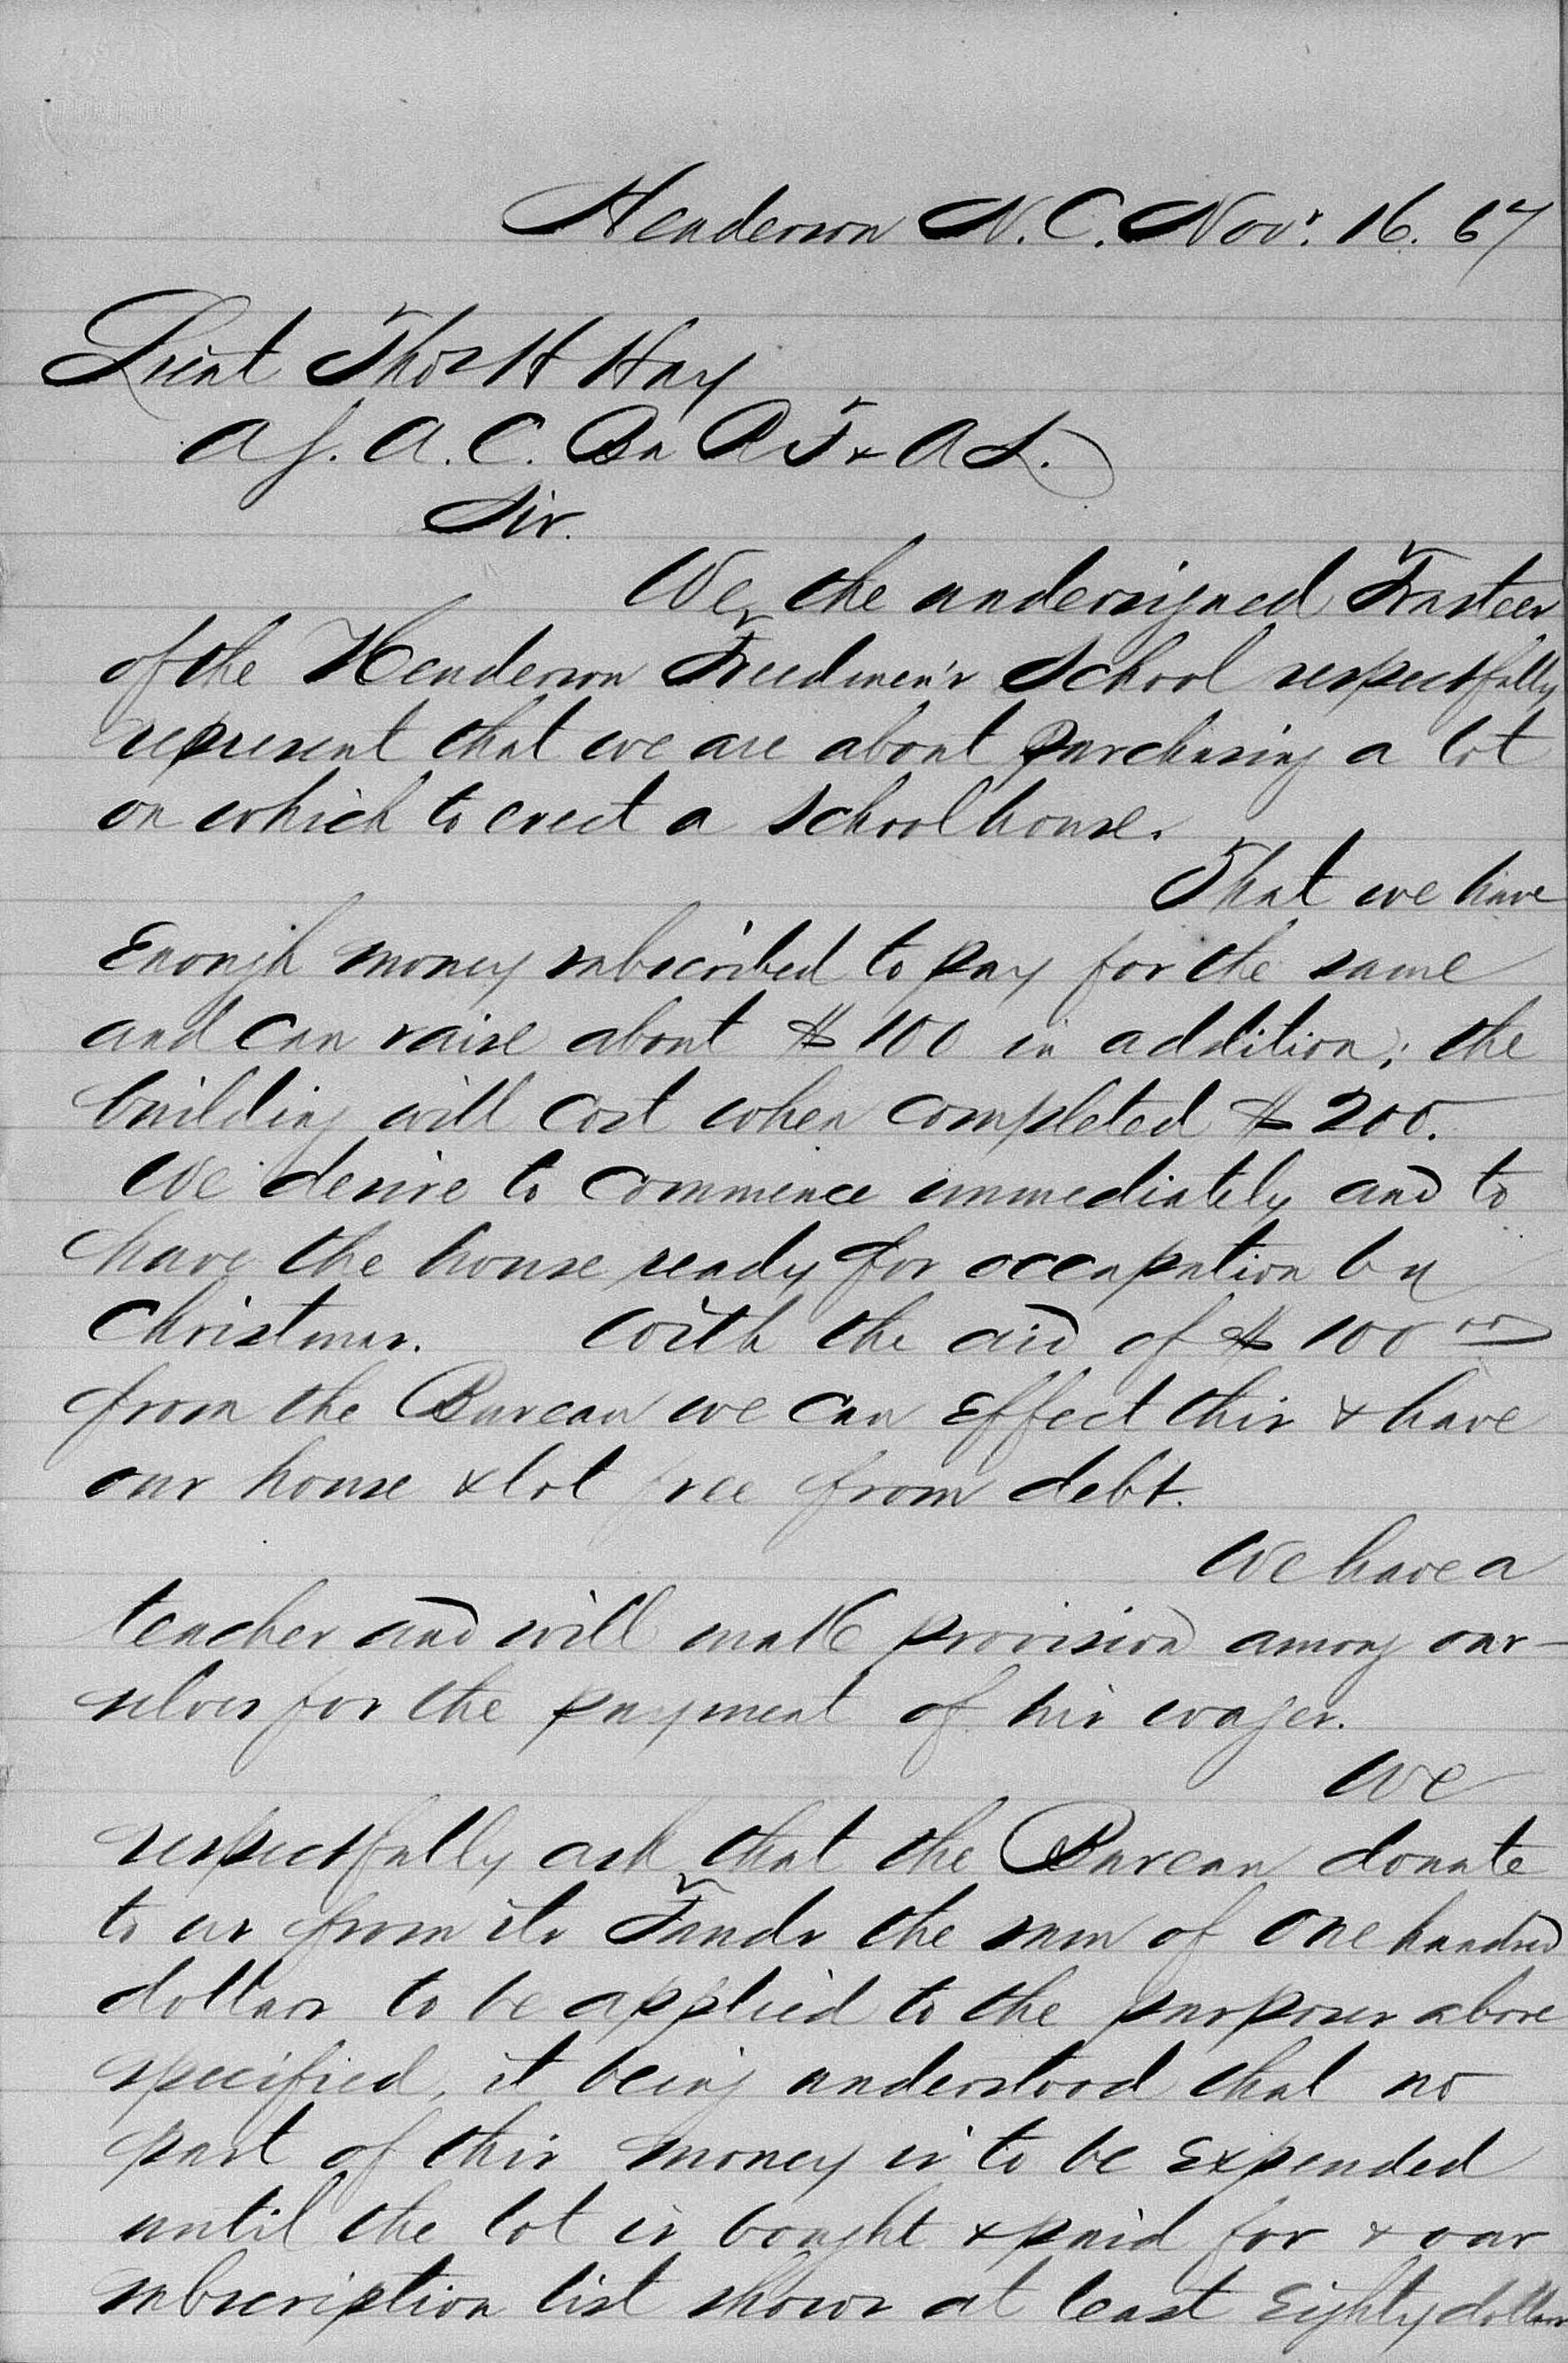 Henderson N.C. Nov. 16. 67
Lieut Thos H Hay
A S. A. C. Bu R F & A L.
Sir.
We, the undersigned Trustees
of the Henderson Freedmen's School respectfully
represent that we are about purchasing a lot
on which to erect a school house.
That we have
Enough money subscribed to pay for the same
and can raise about $100 in addition; the
building will cost when completed $200.
We desire to commence immediately and to
have the house ready for occupation by
Christmas. With the aid of $100.00
from the Bureau we can Effect this & have
our house & lot free from debt.
We have a
teacher and will make provision among our-
selves for the payment of his wages.
We
respectfully ask that the Bureau donate
to us from its Funds the sum of One hundred
dollars to be applied to the purposes above
specified, it being understood that no
part of this money is to be Expended
until the lot is bought & paid for & our
subscription list shows at least Eighty dollars